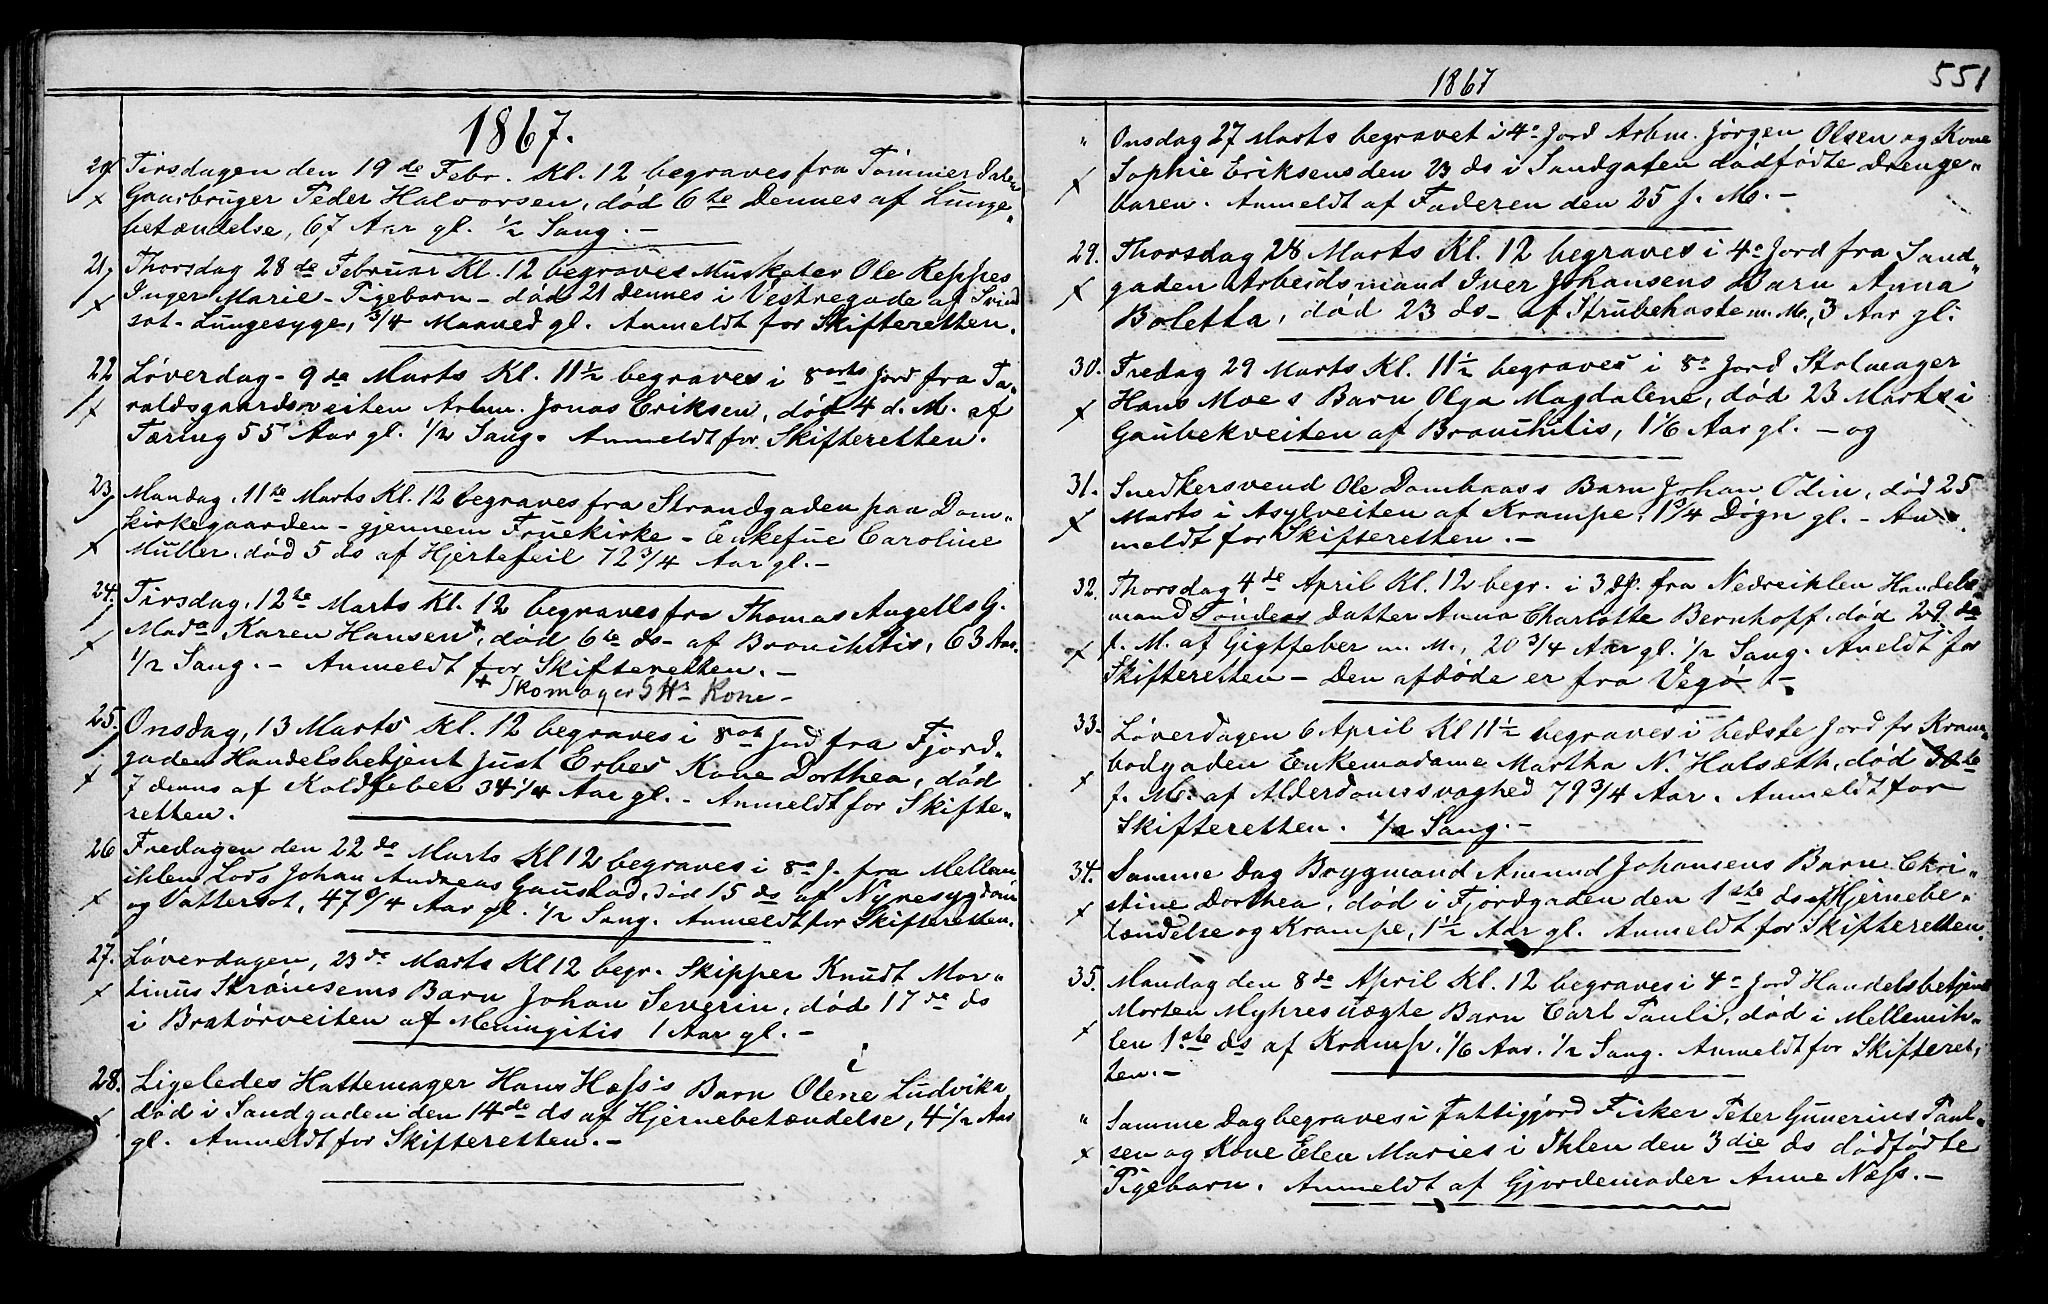 1867.
20. Tirsdagen den 19 de Febr. Kl. 12 begraves fra Tömmerdalen
Gaarbruger Peder Halvorsen, död 6te Dennes af Lunge"
betændelse, 67 Aar gl. ½ Sang. –
21. Thorsdag 28 de Februar Kl. 12 begraves Musketer Ole Reppes
Inger Marie – Pigebarn – död 21 dennes i Vestregade af Svind
sot – Lungesyge, ¾ Maaned gl. Anmeldt for Skifteretten.
22 Löverdag – 9 de Marts Kl. 11½ begraves i 8 arts Jord fra Ta"
raldsgaardsveiten Arbm. Jonas Eriksen, död 4 d. M. af
Tæring 55 Aar gl. ½ Sang. Anmeldt for Skifteretten.
23, Mandag, 11te Marts Kl. 12 begraves fra Strandgaden paa Dom"
kirkegaarden – gjennem Fruekirke – Enkefue Caroline
Müller, död 5 ds af Hjertefeil 72 ¾ Aar gl. –
24. Tirsdag, 12te Marts Kl. 12 begraves fra Thomas Angells G.
Mada Karen Hansen +, död 6te ds – af Bronchitis, 63 Aar.
½ Sang. – Anmeldt for Skifteretten. –
+ Skomager S Hs Kone –
25. Onsdag, 13 Marts Kl. 12 begraves i 8 ots Jord fra Fjord"
gaden Handelsbetjent Just Erbes Kone Dorthea, död
7 denns af Koldfeber 34 ¼ Aar gl. – Anmeldt for Skifte"
retten.
26 Fredagen den 22 de Marts Kl 12 begraves i 8 o J. fra Mellem
ihlen Lods Johan Andreas Gaustad, död 15 ds af Nyresygdom
og Vattersot, 47 ¾ Aar gl. ½ Sang. Anmeldt for Skifteretten.
27. Löverdagen, 23 de Marts Kl 12 begr. Skipper Knudt Mor"
tinus Strömsems Barn Johan Severin, död 17 de ds
i Bratörveiten af Meningitis 1 Aar gl. –
28. Ligeledes Hattemager Hans Hess's Barn Oline Ludvika
död i Sandgaden den 14de ds af Hjernebetændelse, 4 ½ Aar
gl. Anmeldt for Skifteretten. –
1867
551
" Onsdag 27 Marts begravet i 4 o Jord Arbm. Jörgen Olsen og Kone
Sophie Eriksens den 23 ds i Sandgaten dödfödte Drenge"
baren. Anmeldt af Faderen den 25 f. M. –
29. Thorsdag 28 Marts Kl. 12 begraves i 4 o Jord fra Sand"
gaden Arbeidsmand Iver Johansens Barn Anna
Boletta, död 23 ds – af Strubehoste m. M., 3 Aar gl.
30. Fredag 29 Marts Kl. 11½ begraves i 8 o Jord Stolmager
Hans Moes Barn Olga Magdalene, död 23 Marts i
Gaubekveiten af Bronchitis, 1 1/6 Aar gl. – og
31. Snedkersvend Ole Dombaass Barn Johan Odin, död 25
Marts i Asylveiten af Krampe, 1 ¾ Dögn gl. – An"
meldt for Skifteretten. –
32. Thorsdag 4 de April Kl. 12 begr. i 3 df. fra Nedreihlen Handels"
mand Tönders Datter Anna Charlotte Bernhoff, död 29 de
f. M. af Gigtfeber m. M., 20 ¾ Aar gl. ½ Sang. Aneldt for
Skifteretten – Den afdöde er fra Vegö –
33. Löverdagen 6 April Kl 11½ begraves i bedste Jord fr Kram"
bodgaden Enkemadame Martha N. Halseth, död 30te
f. M. af Alderdomssvaghed 79 ¾ Aar. Anmeldt for
Skifteretten. ½ Sang. –
34. Samme Dag Brygmand Amund Johansens Barn Chri"
stine Dorthea, död i Fjordgaden den 1ste ds af Hjernebe"
tændelse og Krampe, 1½ Aar gl. Anmeldt for Skifteretten.
35. Mandag den 8 de April Kl. 12 begraves i 4 o Jord Handelsbetjent
Morten Myhres uægte Barn Carl Pauli, död i Mellemih"
len 1ste ds af Kramp, 1/6 Aar. ½ Sang. Anmeldt for Skifteret,
ten. –
" Samme Dag begraves i Fattigjord Fisker Peter Gunerius Paul"
sen og Kone Elen Maries i Ihlen den 3 die ds dödfödte
Pigebarn. Anmeldt af Gjordemoder Anne Næss. –